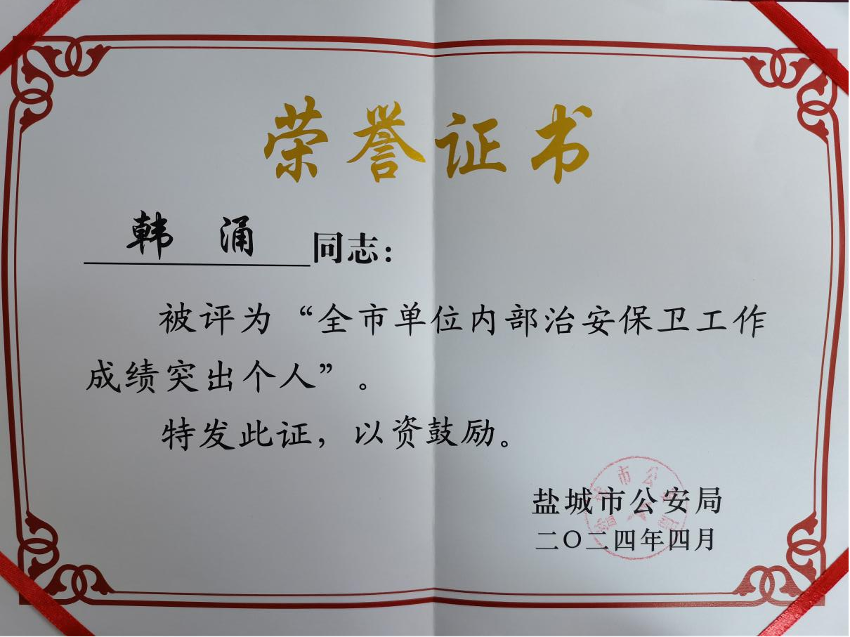 荣誉证书
韩 涌 同志：
被评为“全市单位内部治安保卫工作
成绩突出个人”。
特发此证，以资鼓励。
盐城市公安局
二〇二四年四月